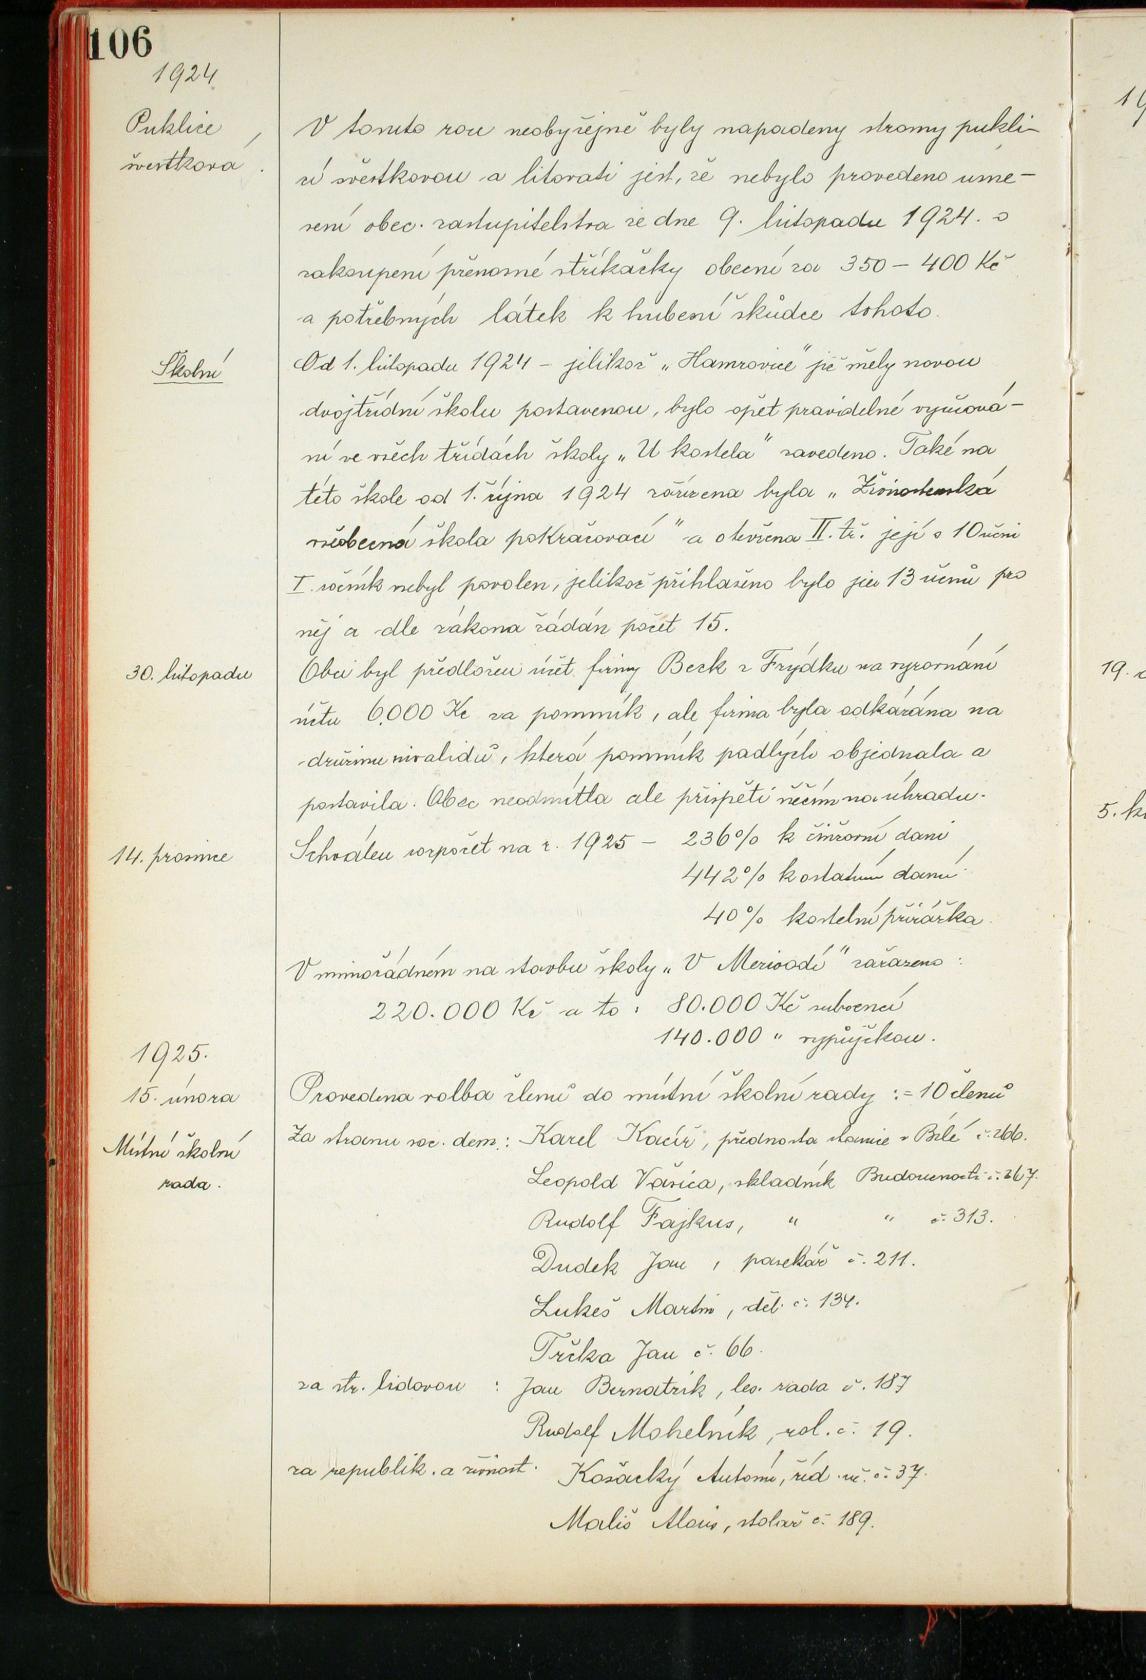 106
1924
Puklice
švestková.
V tomto roce neobyčejně byly napadeny stromy pukli-
cí švestkovou a litovati jest, že nebylo provedeno usne-
sení obec. zastupitelstva ze dne 9. listopadu 1924. o
zakoupení přenosné stříkačky obecní za 350 – 400 Kč
a potřebných látek k hubení škůdce tohoto.
Školní
Od 1. listopadu 1924 – jelikož „Hamrovice" již měly novou
dvojtřídní školu postavenou, bylo opět pravidelné vyučová-
ní ve všech třídách školy „U kostela" zavedeno. Také na
této škole od 1. října 1924 zřízena byla „Živnostenská
všeobecná škola pokračovací" a otevřena II. tř. její s 10 učni
I. ročník nebyl povolen, jelikož přihlášeno bylo jen 13 učňů pro
něj a dle zákona žádán počet 15.
30. listopadu
Obci byl předložen účet firmy Beck z Frýdku na vyrovnání
účtu 6.000 Kč za pomník, ale firma byla odkázána na
družinu invalidů, která pomník padlých objednala a
postavila. Obec neodmítla ale přispěti něčím na úhradu.
14. prosince
Schválen rozpočet na r. 1925 – 236% k činžovní dani
442% k ostatním daním
40% kostelní přirážka.
V mimořádném na stavbu školy „V Mezivodí" zařazeno:
220.000 Kč a to: 80.000 Kč subvencí
140.000 " výpůjčkou.
1925.
15. února
Provedena volba členů do místní školní rady := 10 členů
Místní školní
rada.
Za stranu soc. dem.: Karel Kacíř, přednosta stanice v Bílé č. 266.
Leopold Vašica, skladník Budoucnosti č. 267.
Rudolf Fajkus, " " č. 313.
Dudek Jan, pasekář č. 211.
Lukeš Martin, děl. č. 134.
Trčka Jan č. 66.
za str. lidovou: Jan Bernatzik, les. rada č. 187
Rudolf Mohelník, rol. č. 19.
za republik. a živnost. Košacký Antonín, říd. uč. č. 37.
Mališ Alois, stolař č. 189.
19.
5.